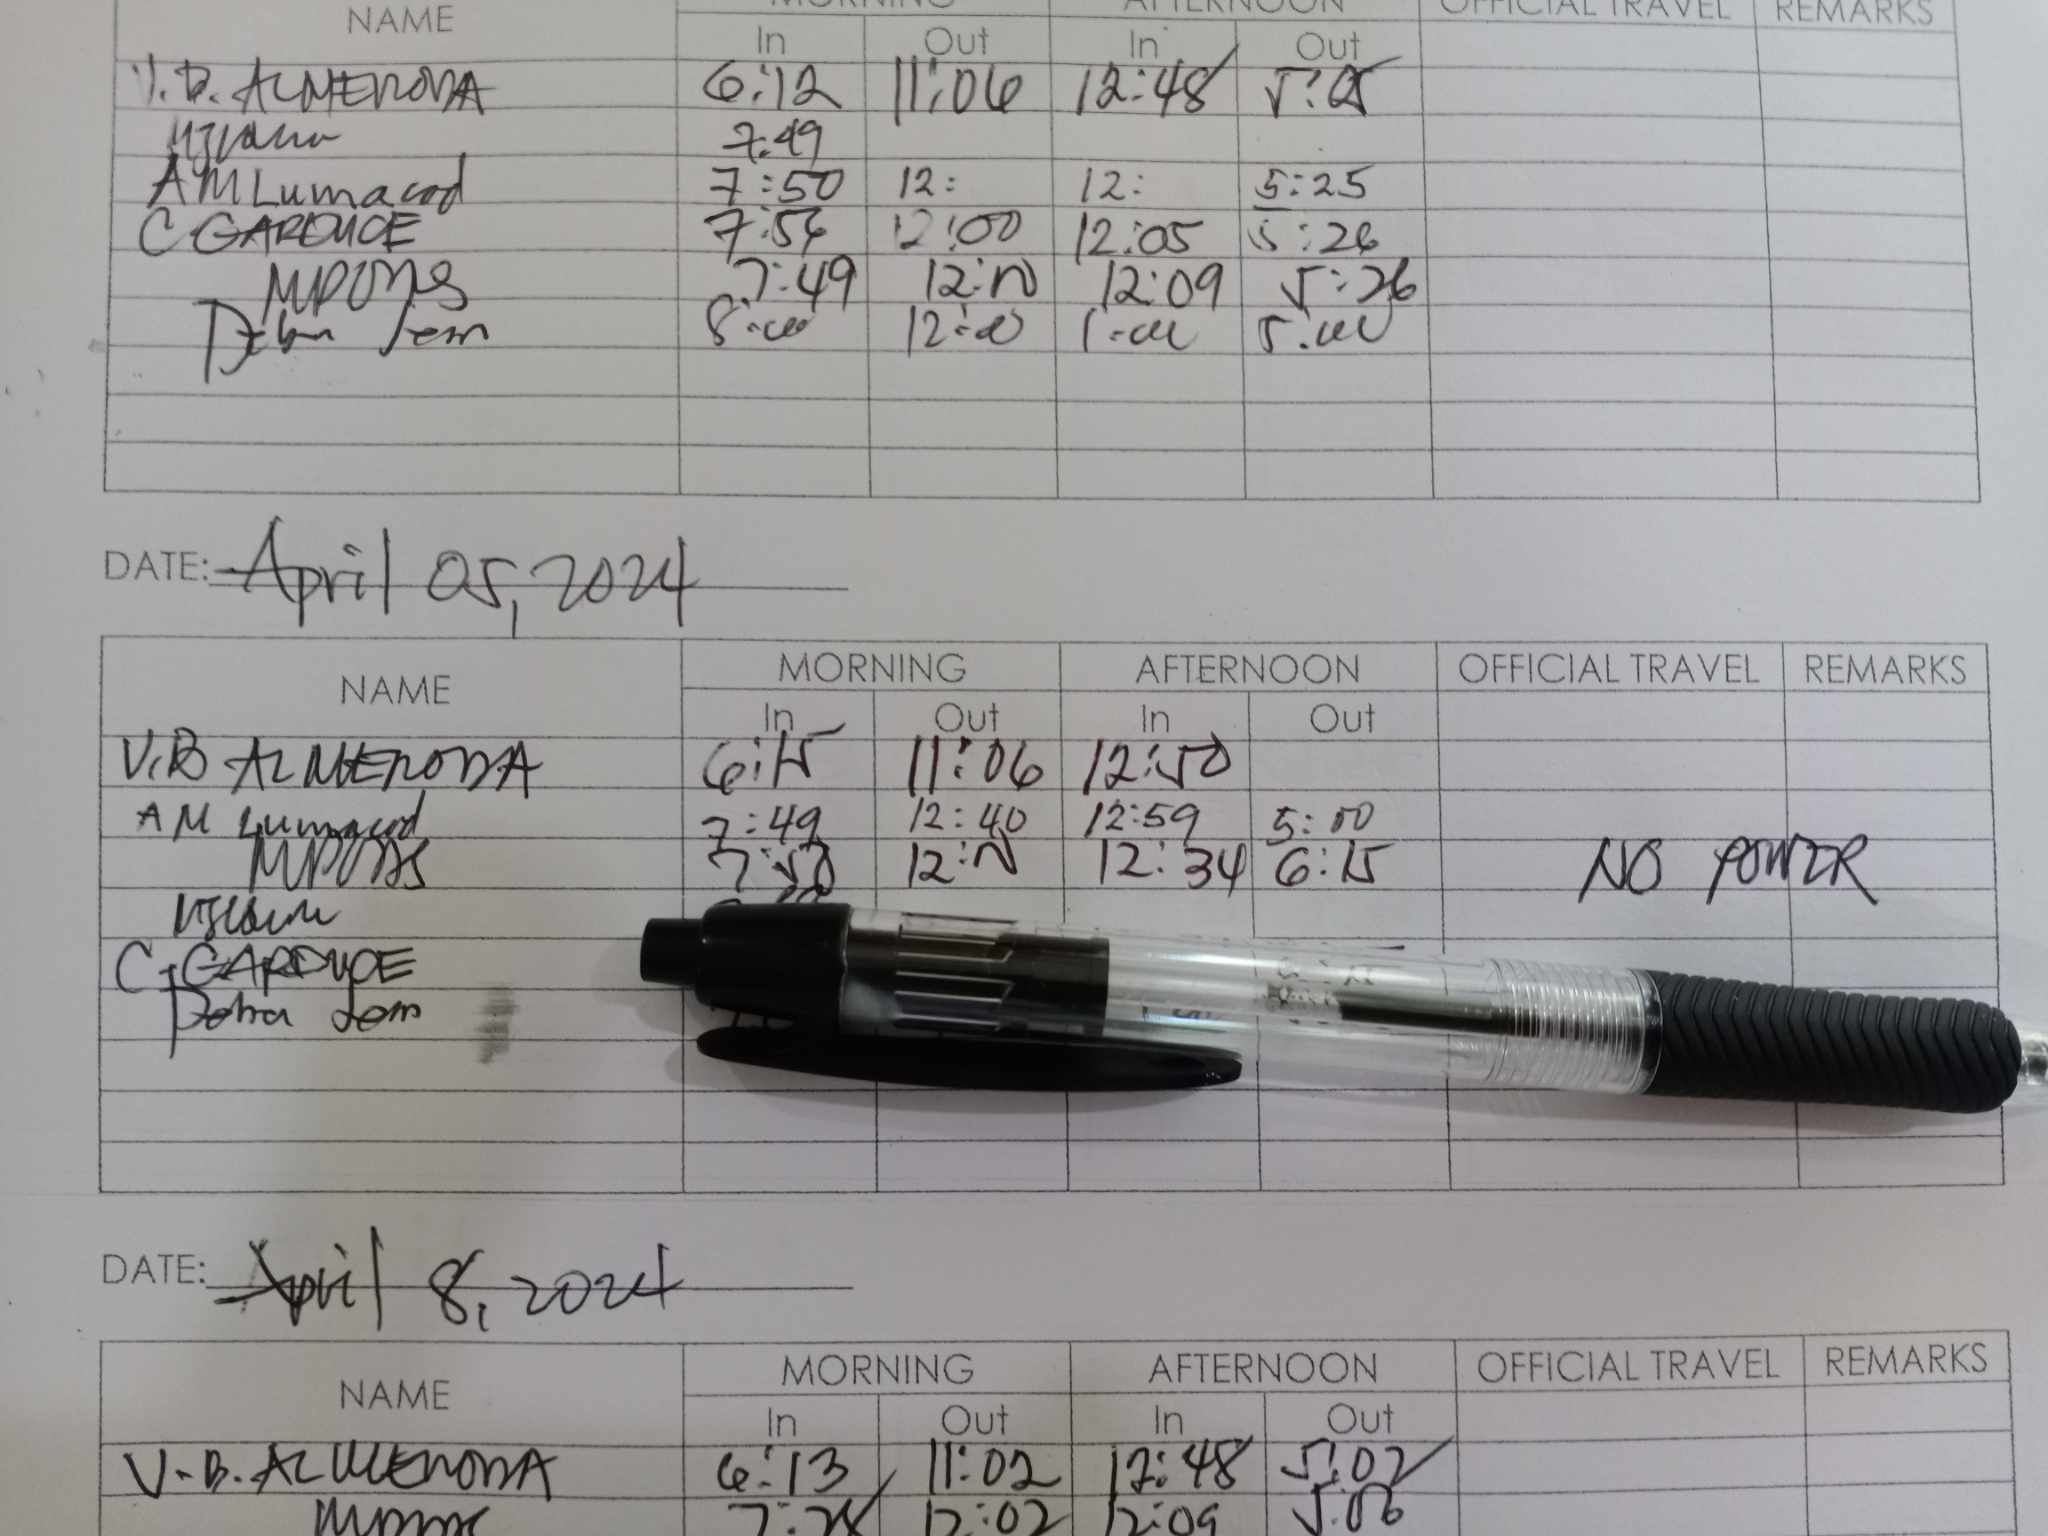 NAME MORNING AFTERNOON OFFICIAL TRAVEL REMARKS
In Out In Out
V.B. ALMERODA 6:12 11:06 12:48 5:05
7:49
AM Lumacad 7:50 12: 12: 5:25
C GARDUCE 7:56 12:00 12:05 5:26
7:49 12:N 12:09 5:26
8:00 12:00 1:00 5:00
DATE: April 05, 2024
NAME MORNING AFTERNOON OFFICIAL TRAVEL REMARKS
In Out In Out
V.B ALMERODA 6:15 11:06 12:50
AM Lumacad 7:49 12:40 12:59 5:00
7:50 12:N 12:34 6:15 NO POWER
C. GARDUCE
DATE: April 8, 2024
NAME MORNING AFTERNOON OFFICIAL TRAVEL REMARKS
In Out In Out
V.B. ALMERODA 6:13 11:02 12:48 5:02
12:02 12:09 5:06